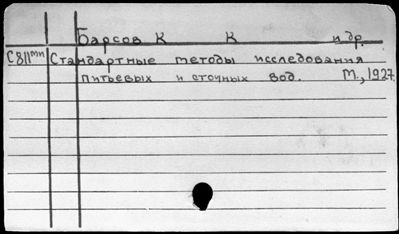 Барсов К К и др.
С811ти Стандартные методы исследования
питьевых и сточных вод. М., 1927